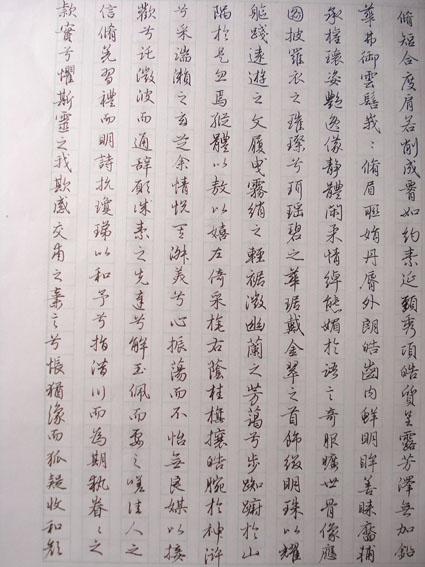 脩短合度肩若削成腰如約素延頸秀項皓質呈露芳澤無加鉛
華弗御雲髻峩々脩眉聯娟丹脣外朗皓齒內鮮明眸善睞靨輔
承權瓌姿艷逸儀靜體閑柔情綽態媚於語言奇服曠世骨像應
圖披羅衣之璀璨兮珥瑤碧之華琚戴金翠之首飾綴明珠以耀
軀踐遠遊之文履曳霧綃之輕裾微幽蘭之芳藹兮步踟躕於山
隅於是忽焉縱體以敖以嬉左倚采旄右蔭桂旗攘皓腕於神滸
兮采湍瀨之玄芝余情悅其淑美兮心振蕩而不怡無良媒以接
歡兮託微波而通辭願誠素之先達兮解玉佩而要之嗟佳人之
信脩羌習禮而明詩抗瓊珶以和予兮指潛川而為期執眷々之
款實兮懼斯靈之我欺感交甫之棄言兮悵猶豫而狐疑收和顏